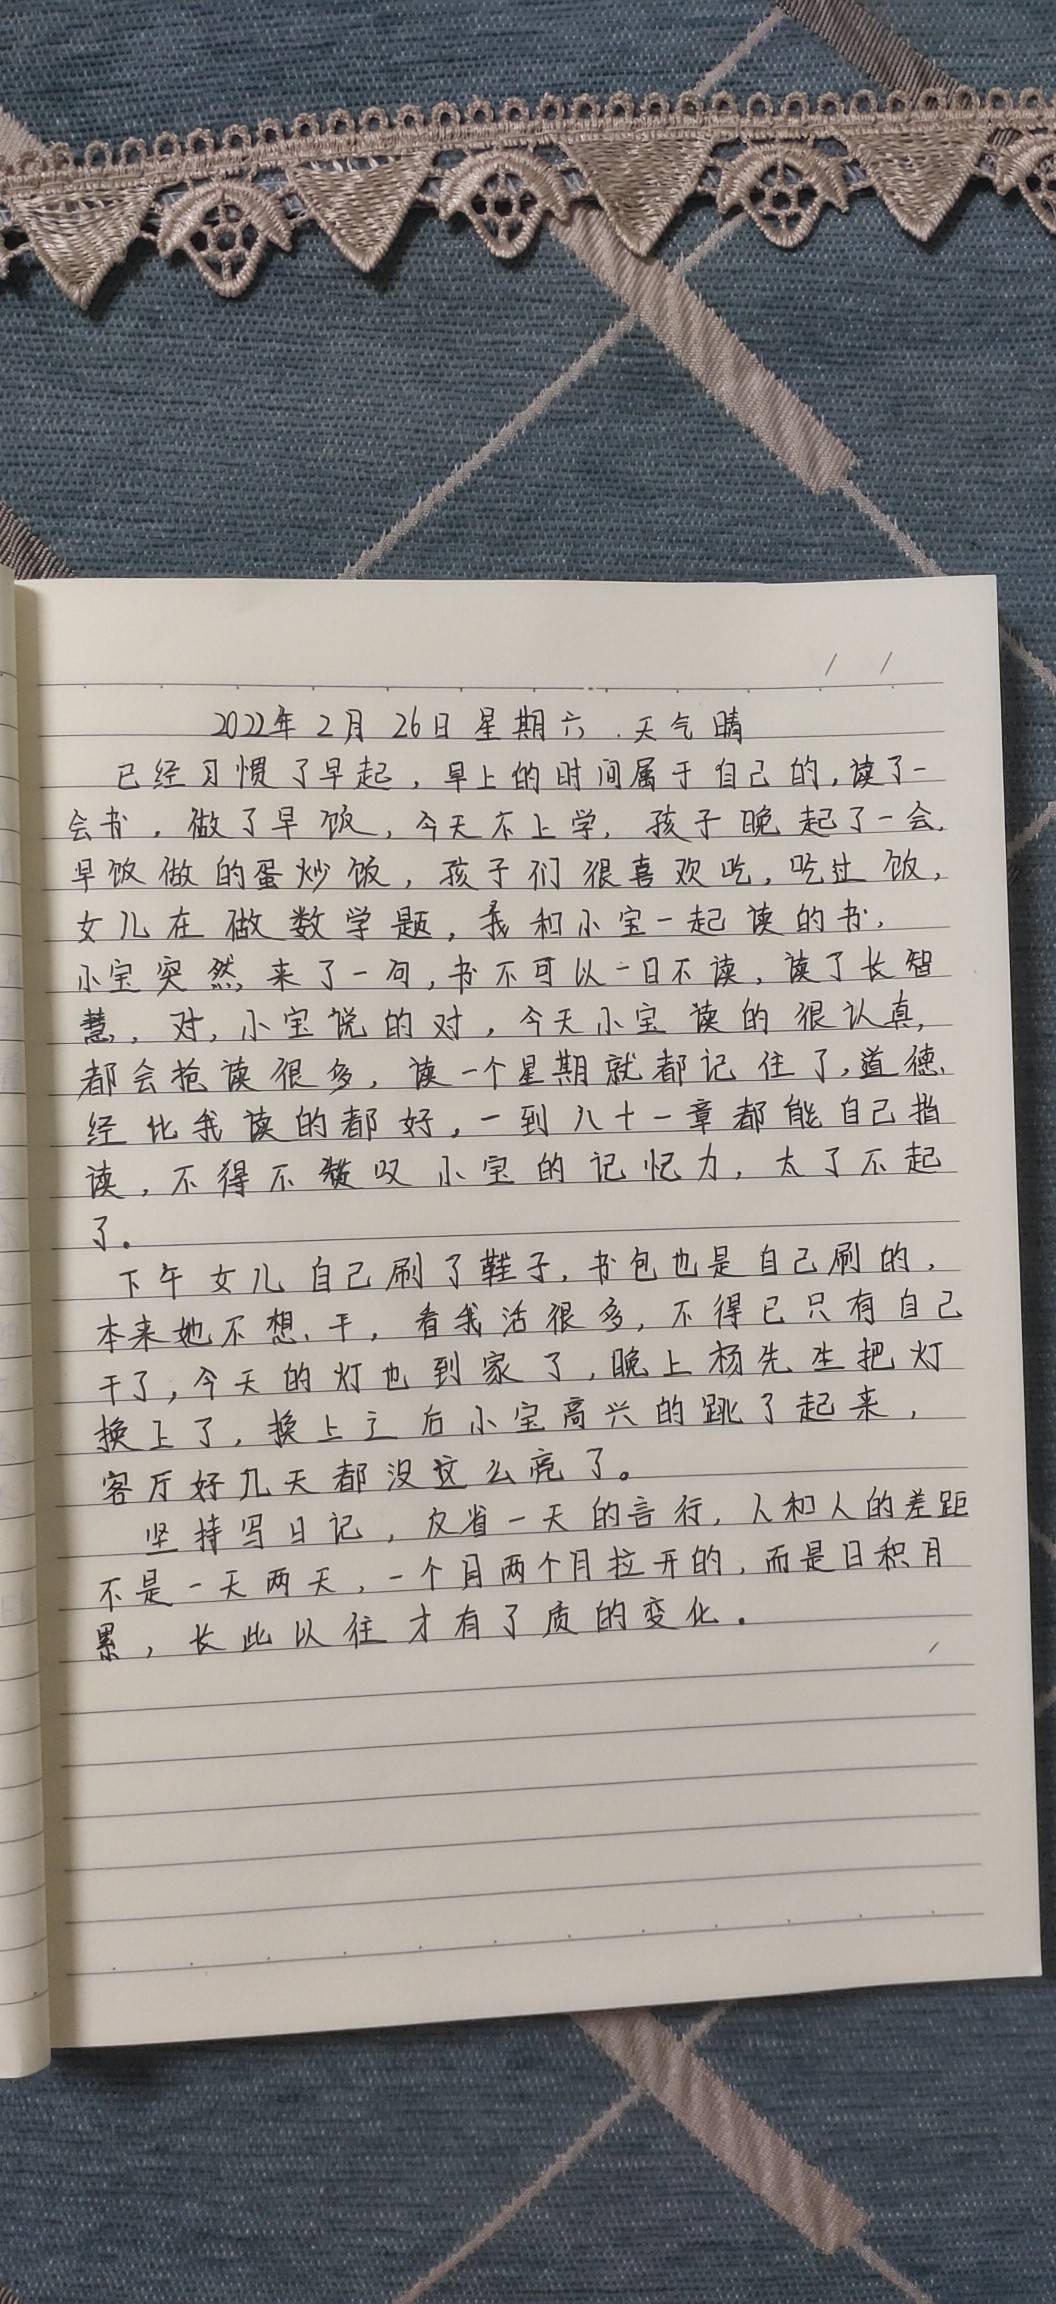 2022年2月26日星期六.天气晴
已经习惯了早起,早上的时间属于自己的,读了一
会书,做了早饭,今天不上学,孩子晚起了一会,
早饭做的蛋炒饭,孩子们很喜欢吃,吃过饭,
女儿在做数学题,我和小宝一起读的书,
小宝突然来了一句,书不可以一日不读,读了长智
慧,对,小宝说的对,今天小宝读的很认真,
都会抢读很多,读一个星期就都记住了,道德
经比我读的都好,一到八十一章都能自己指
读,不得不叹小宝的记忆力,太了不起
了。
下午女儿自己刷了鞋子,书包也是自己刷的,
本来她不想干,看我活很多,不得已只有自己
干了,今天的灯也到家了,晚上杨先生把灯
换上了,换上之后小宝高兴的跳了起来,
客厅好几天都没这么亮了。
坚持写日记,反省一天的言行,人和人的差距
不是一天两天,一个月两个月拉开的,而是日积月
累,长此以往才有了质的变化.